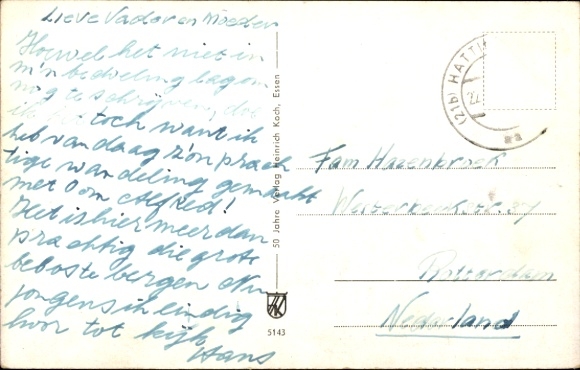 Lieve Vader en Moeder
Hoewel het niet in
m'n bedoeling lag om
nog te schrijven, doe
ik het toch want ik
heb vandaag z'n prach
tige wandeling gemaakt
met Oom Alfred!
Het is hier meer dan
prachtig die grote
beboste bergen. Nu
jongens ik eindig
hoor tot kijk
Hans
50 Jahre Verlag Heinrich Koch, Essen
HK
5143
(21b) HATTI
Fam Hazenbroek
Rotterdam
Nederland